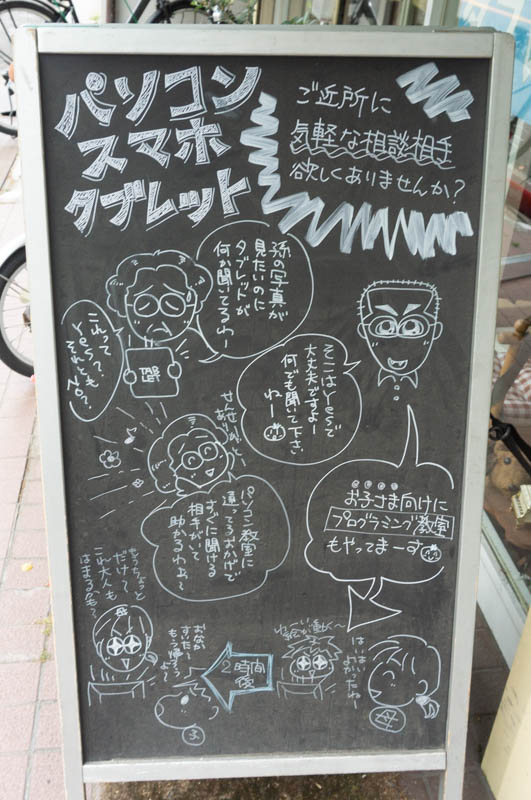 パソコン
スマホ
タブレット
ご近所に
気軽な相談相手
欲しくありませんか?
孫の写真が
見たいのに
タブレットが
何か聞いてるわー
これって
Yes?
それとも
No?
TAB
LET
そこはYesで
大丈夫ですよー
何でも聞いて下さい
ねー
せんせい
ありがとー
パソコン教室に
通ってるおかげで
すぐに聞ける
相手がいて
助かるわぁ〜
お子さま向けに
プログラミング教室
もやってまーす
はいはい
よかったねー
母
ね、絵が動く〜
2時間
後
おなか
すいたー
もう帰ろう
よー
子
もうちょっと
だけ〜
これ大人も
はまるかも?